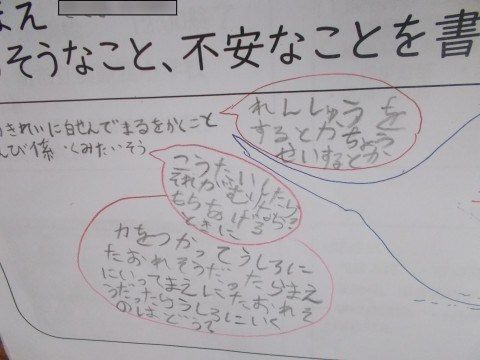 まえ
うそうなこと、不安なことを書
きれいに白せんでまるをかくこと
んび係 くみたいそう
れんしゅうを
するとかちょう
せいするとか
こうたいしたら
それがむりなら
もちあげる
ときに
力をつかってうしろに
たおれそうだったらまえ
にいってまえにたおれそ
うだったらうしろにいく
のはどう?